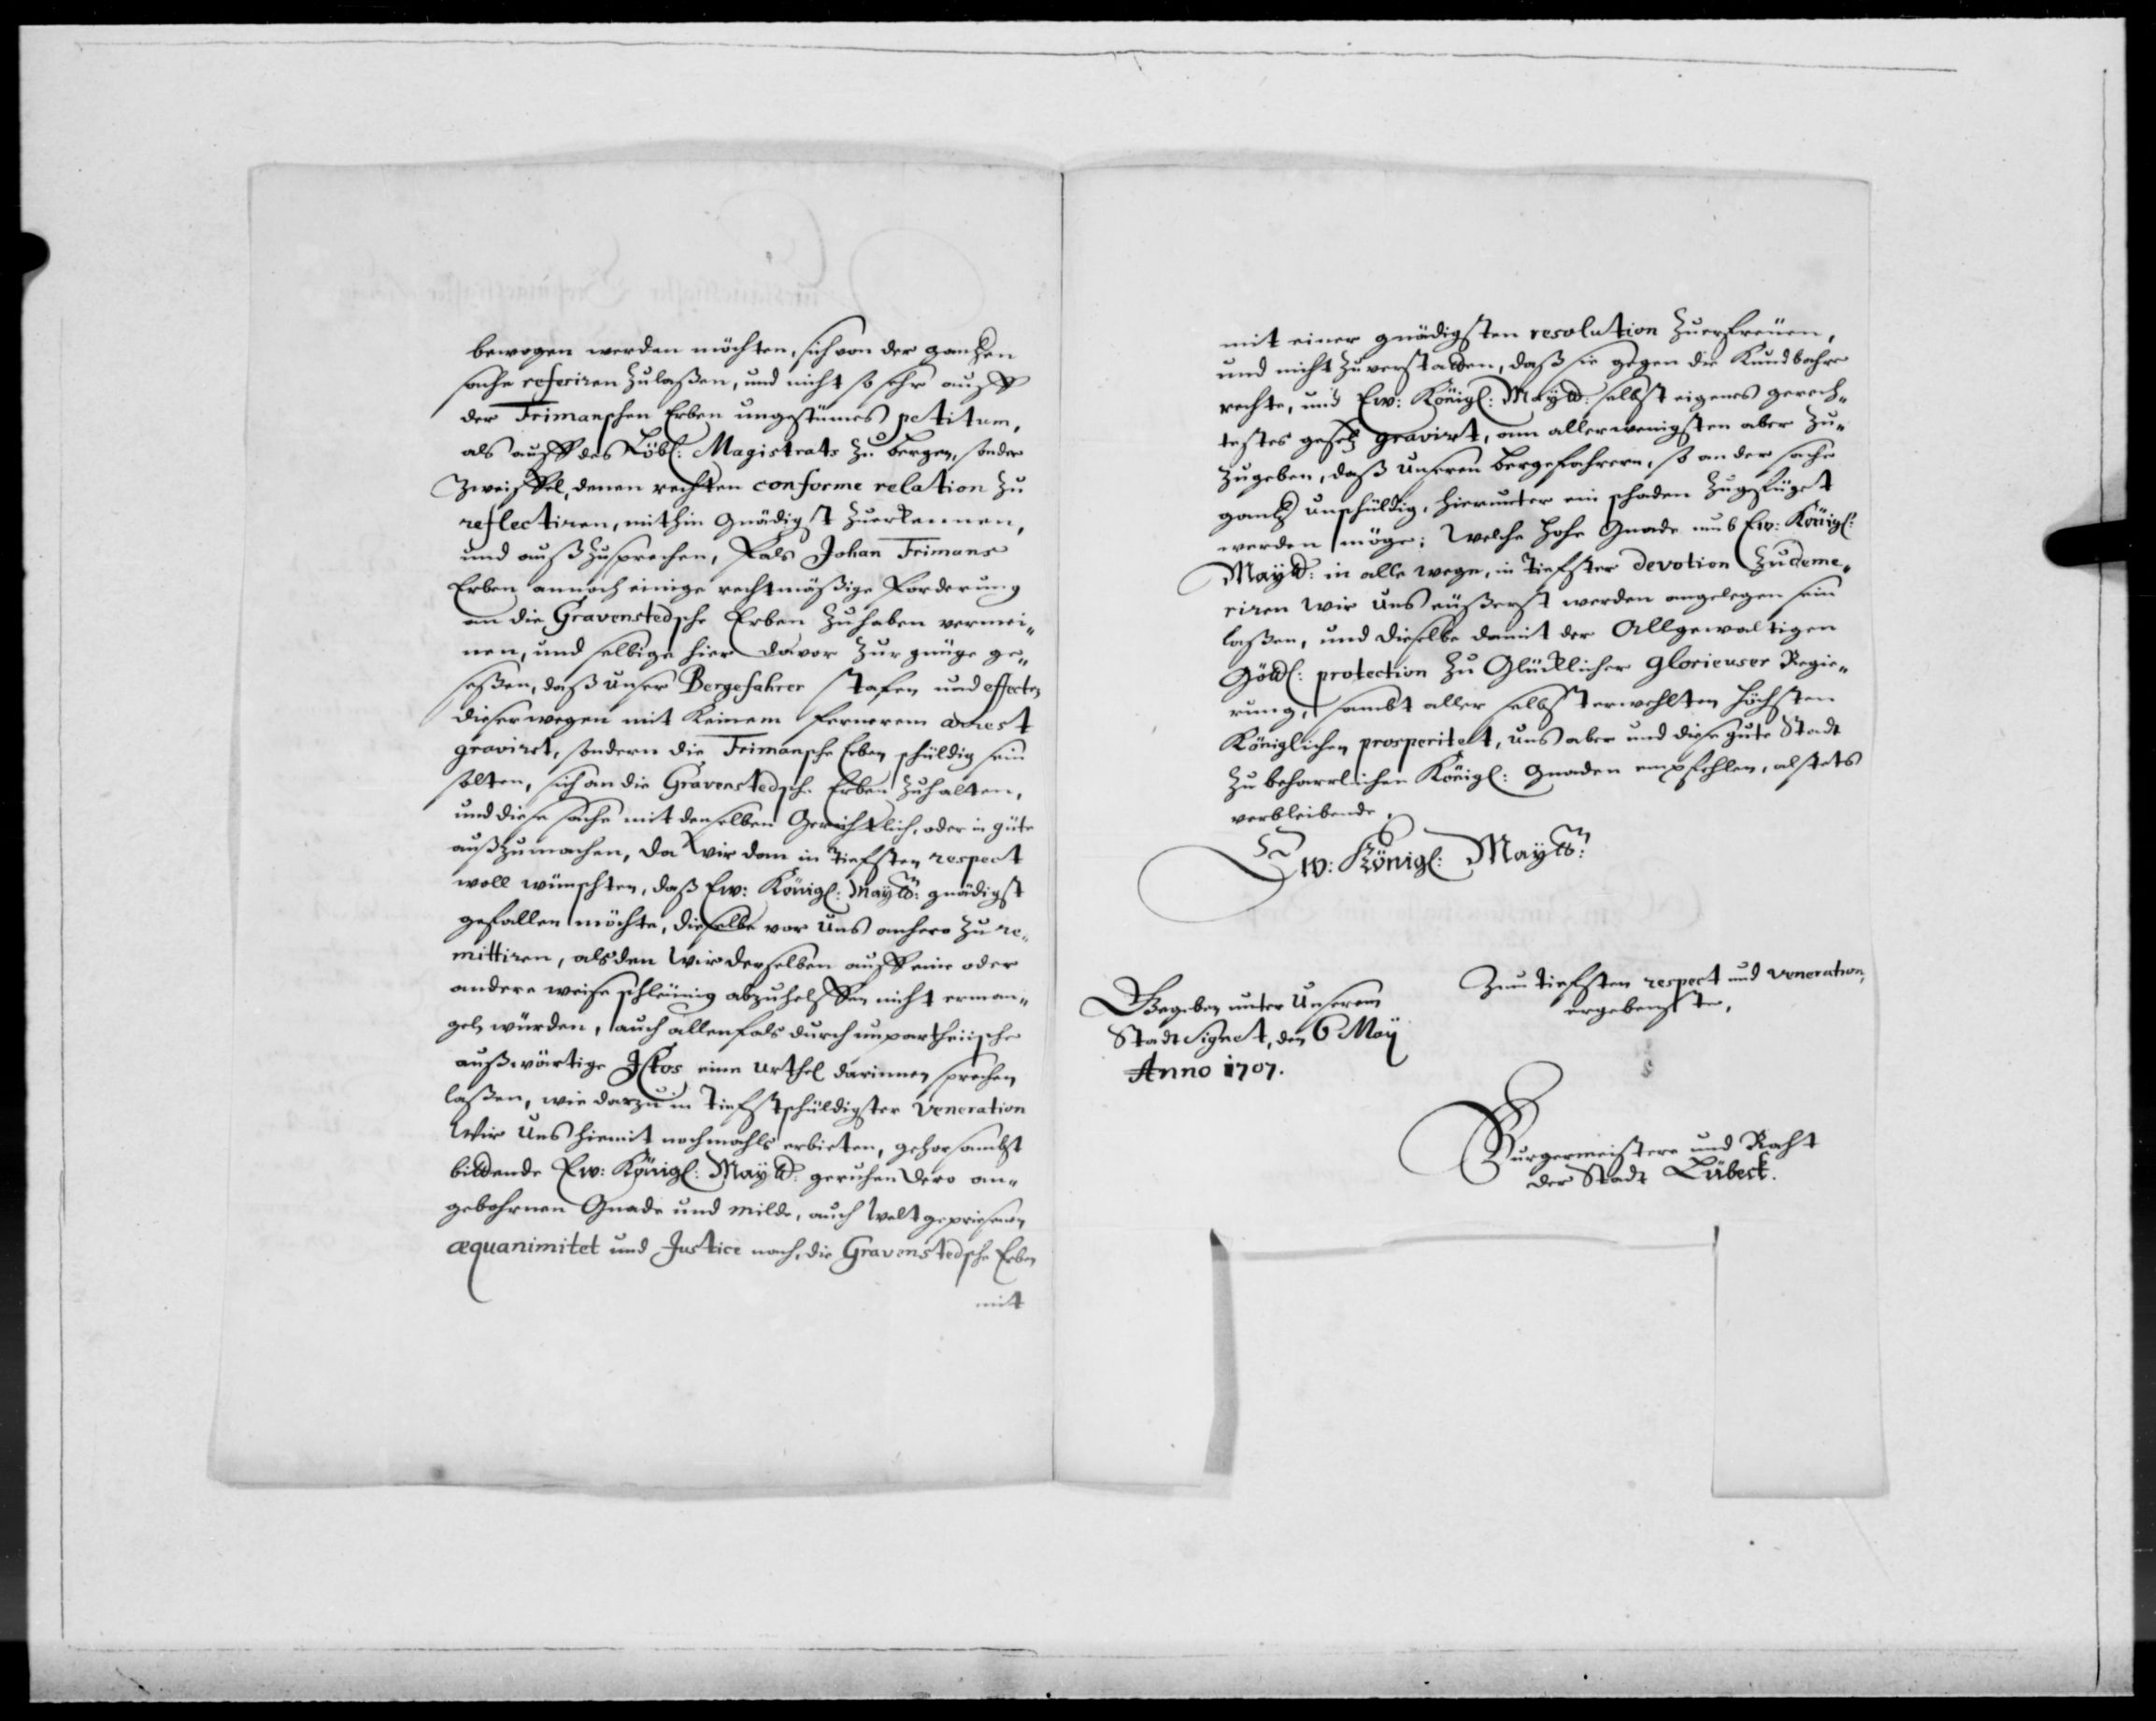 bewogen werden möchten, sich von der gantzen
sache referiren zulaßen, und nicht so sehr auff
der Frimanschen Erben ungestümes petitum,
als auff des Löbl: Magistrats zu bergen, sonder
Zweiffel, denen rechten conforme relation zu
reflectiren, mithin gnädigst zuerkennen,
und außzusprechen, Fals Johan Frimans
Erben annoch einige rechtmäßige Forderung
an die Gravenstedsche Erben zuhaben vermei„
nen, und selbige hier davor zur gnüge ge„
seßen, daß unser Bergefahrer stafen und effecten
dieserwegen mit keinem fernerem arrest
gravirt, sondern die Frimansche Erben schüldig sein
solten, sich an die Gravenstedsche Erben zuhalten,
und diese sache mit denselben Gerichtlich, oder in güte
außzumachen, da wir dan in tiefsten respect
woll wünschten, daß Ew: Königl: Maytt: gnädigst
gefallen möchte, dieselbe vor uns anhero zu re„
mittiren, alsden wir derselben auff eine oder
andere weise schleünig abzuhelffen nicht erman„
geln würden, auch allenfals durch unpartheiische
außwärtige JCtos eine urthel darinnen sprechen
laßen, wie darzu in tiefstschüldigster veneration
Wir Uns hiemit nochmahls erbieten, gehorsambst
bittende Ew: Königl: Maytt: geruhen dero an„
gebohrnen Gnade und milde, auch weltgepriesenen
æquanimitet und Justice nach, die Gravenstedsche Erben
mit
mit einer gnädigsten resolution zuerfreüen,
und nicht zuverstatten, daß sie gegen die Kundbahre
rechte, und Ew: Königl: Maytt: selbst eigenes gerech„
testes gesetz gravirt, am allerwenigsten aber zu„
zugeben, daß unseren bergefahrern, so an der sache
gantz unschüldig, hierunter ein schaden zugefüget
werden möge; Welche hohe Gnade umb Ew: Königl:
Maytt: in alle wege, in tiefster devotion zudeme„
riren wir uns eüßerst werden angelegen sein
laßen, und dieselbe damit der Allgewaltigen
Göttl: protection zu Glücklicher glorieuser Regie„
rung, sambt aller selbst erwehlten höchsten
Königlichen prosperitet, uns aber und diese gute Stadt
zu beharrlichen Königl: Gnaden empfehlen, alstets
verbleibende,
Ew: Königl: Maytt:
Zum tiefsten respect und veneration,
ergebenste,
Gegeben unter Unserem
Stadt signet, den 6 May
Anno 1707.
Bürgermeistere und Raht
der Stadt Lübeck.